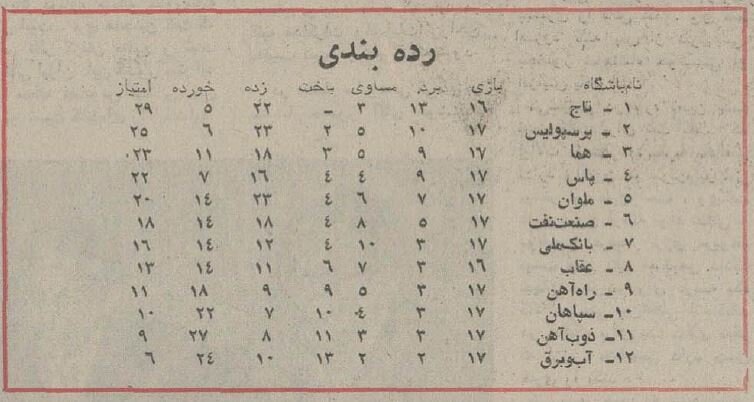 رده بندی
نام‌باشگاه بازی برد مساوی باخت زده خورده امتیاز
۱ – تاج ۱۶ ۱۳ ۳ – ۲۲ ۵ ۲۹
۲ – پرسپولیس ۱۷ ۱۰ ۵ ۲ ۲۳ ۶ ۲۵
۳ – هما ۱۷ ۹ ۵ ۳ ۱۸ ۱۱ ۲۳
۴ – پاس ۱۷ ۹ ۴ ۴ ۱۶ ۷ ۲۲
۵ – ملوان ۱۷ ۷ ۶ ۴ ۲۳ ۱۴ ۲۰
۶ – صنعت‌نفت ۱۷ ۵ ۸ ۴ ۱۸ ۱۴ ۱۸
۷ – بانک‌ملی ۱۷ ۳ ۱۰ ۴ ۱۲ ۱۴ ۱۶
۸ – عقاب ۱۶ ۳ ۷ ۶ ۱۱ ۱۴ ۱۳
۹ – راه‌آهن ۱۷ ۳ ۵ ۹ ۹ ۱۸ ۱۱
۱۰– سپاهان ۱۷ ۳ ۴ ۱۰ ۷ ۲۲ ۱۰
۱۱– ذوب‌آهن ۱۷ ۳ ۳ ۱۱ ۸ ۲۷ ۹
۱۲– آب‌وبرق ۱۷ ۲ ۲ ۱۳ ۱۰ ۲۴ ۶